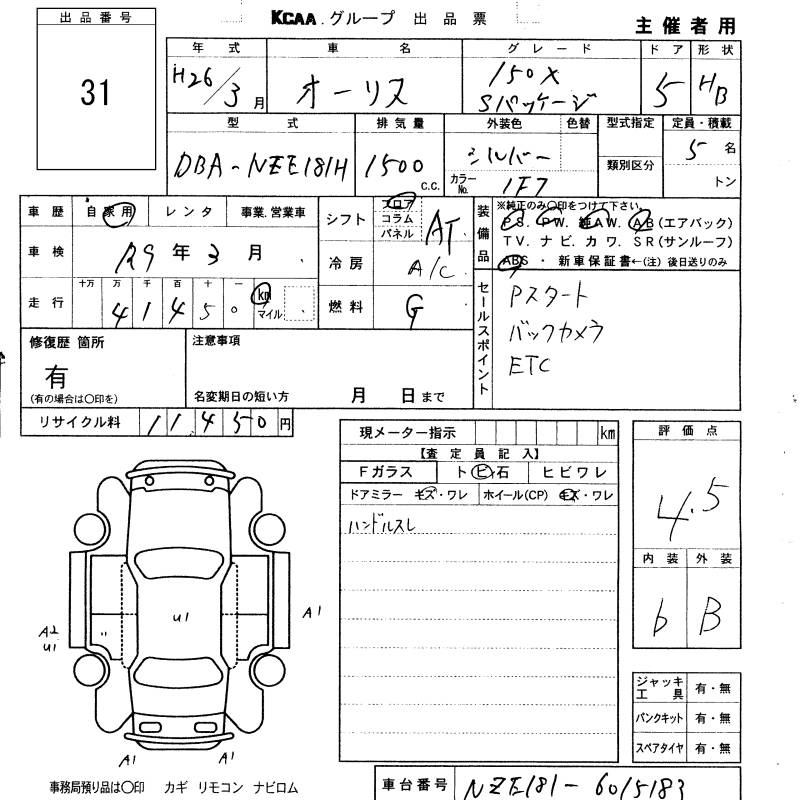 出品番号
31
KCAA.グループ 出品票
主催者用
年式 車名 グレード ドア 形状
H26/3月 オーリス 150X Sパッケージ 5 HB
型式 排気量 外装色 色替 型式指定 定員・積載
DBA-NZE181H 1500 C.C. シルバー 類別区分 5名
カラーNo. 1F7 トン
車歴 自家用 レンタ 事業.営業車
車検 R9年3月
走行 十万 万 千 百 十 一
4 1 4 5 0 km マイル
シフト フロア コラム パネル AT
冷房 A/C
燃料 G
装備品
※純正のみ○印をつけて下さい。
PS. PW. 純AW. AB(エアバック)
TV. ナビ. カワ. SR(サンルーフ)
ABS ・ 新車保証書←(注)後日送りのみ
セールスポイント
Pスタート
バックカメラ
ETC
修復歴 箇所
有
(有の場合は○印を)
注意事項
名変期日の短い方 月 日まで
リサイクル料 11,450円
現メーター指示 km
【査定員記入】
Fガラス トビ石 ヒビワレ
ドアミラー キズ・ワレ ホイール(CP) キズ・ワレ
ハンドルスレ
評価点
4.5
内装 外装
b B
ジャッキ工具 有・無
パンクキット 有・無
スペアタイヤ 有・無
U1
A1
A2
U1
〃
A1 A1
事務局預り品は○印 カギ リモコン ナビロム
車台番号 NZE181-6015183